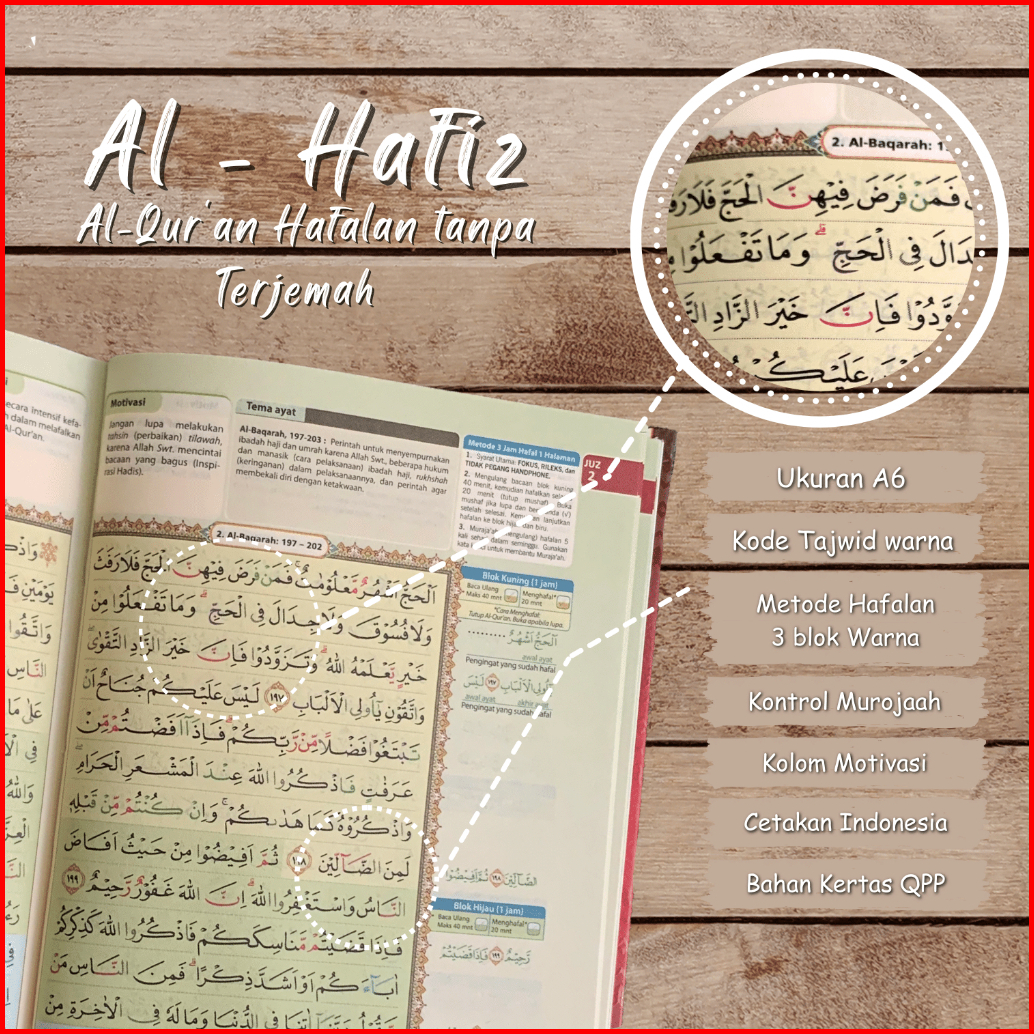 Al - Hafiz
Al-Qur'an Hafalan tanpa
Terjemah
2. Al-Baqarah: 1
فَمَنْ فَرَضَ فِيْهِنَّ الْحَجَّ فَلَا رَفَ
دَالَ فِى الْحَجِّ ۗ وَمَا تَفْعَلُوْا مِ
وَّدُوْا فَاِنَّ خَيْرَ الزَّادِ
عَلَيْكُمْ
Ukuran A6
Kode Tajwid warna
Metode Hafalan
3 blok Warna
Kontrol Murojaah
Kolom Motivasi
Cetakan Indonesia
Bahan Kertas QPP
ecara intensif kefa-
dalam melafalkan
Al-Qur'an.
Motivasi
Jangan lupa melakukan
tahsin (perbaikan) tilawah,
karena Allah Swt. mencintai
bacaan yang bagus (Inspi-
rasi Hadis).
Tema ayat
Al-Baqarah, 197-203 : Perintah untuk menyempurnakan
ibadah haji dan umrah karena Allah Swt., beberapa hukum
dan manasik (cara pelaksanaan) ibadah haji, rukhshah
(keringanan) dalam pelaksanaannya, dan perintah agar
membekali diri dengan ketakwaan.
Metode 3 Jam Hafal 1 Halaman
1. Syarat Utama: FOKUS, RILEKS, dan
TIDAK PEGANG HANDPHONE.
2. Mengulang bacaan blok kuning
40 menit, kemudian hafalkan
20 menit (tutup mushaf. Buka
mushaf jika lupa dan beri tanda (√)
setelah selesai. Kemudian lanjutkan
hafalan ke blok hijau dan biru.
3. Muraja'ah (mengulang) hafalan 5
kali sehari dalam seminggu. Gunakan
kata kunci untuk membantu Muraja'ah.
JUZ
2
2. Al-Baqarah: 197 – 202
اَلْحَجُّ اَشْهُرٌ مَّعْلُوْمٰتٌ ۚ فَمَنْ فَرَضَ فِيْهِنَّ الْحَجَّ فَلَا رَفَثَ
وَلَا فُسُوْقَ وَلَا جِدَالَ فِى الْحَجِّ ۗ وَمَا تَفْعَلُوْا مِنْ
خَيْرٍ يَّعْلَمْهُ اللّٰهُ ۗ وَتَزَوَّدُوْا فَاِنَّ خَيْرَ الزَّادِ التَّقْوٰى ۖ
وَاتَّقُوْنِ يٰٓاُولِى الْاَلْبَابِ ١٩٧ لَيْسَ عَلَيْكُمْ جُنَاحٌ اَنْ
تَبْتَغُوْا فَضْلًا مِّنْ رَّبِّكُمْ ۗ فَاِذَآ اَفَضْتُمْ مِّنْ
عَرَفٰتٍ فَاذْكُرُوا اللّٰهَ عِنْدَ الْمَشْعَرِ الْحَرَامِ ۖ
وَاذْكُرُوْهُ كَمَا هَدٰىكُمْ ۚ وَاِنْ كُنْتُمْ مِّنْ قَبْلِهٖ
لَمِنَ الضَّاۤلِّيْنَ ١٩٨ ثُمَّ اَفِيْضُوْا مِنْ حَيْثُ اَفَاضَ
النَّاسُ وَاسْتَغْفِرُوا اللّٰهَ ۗ اِنَّ اللّٰهَ غَفُوْرٌ رَّحِيْمٌ ١٩٩
فَاِذَا قَضَيْتُمْ مَّنَاسِكَكُمْ فَاذْكُرُوا اللّٰهَ كَذِكْرِكُمْ
اٰبَاۤءَكُمْ اَوْ اَشَدَّ ذِكْرًا ۗ فَمِنَ النَّاسِ مَنْ
يَّقُوْلُ رَبَّنَآ اٰتِنَا فِى الدُّنْيَا وَمَا لَهٗ فِى الْاٰخِرَةِ مِنْ
Blok Kuning (1 jam)
Baca Ulang
* Maks 40 mnt
Menghafal*
20 mnt
*Cara Menghafal:
Tutup Al-Qur'an. Buka apabila lupa.
اَلْحَجُّ اَشْهُرٌ .........
awal ayat
Pengingat yang sudah hafal
يٰٓاُولِى الْاَلْبَابِ ١٩٧ لَيْسَ
awal ayat akhir ayat
Pengingat yang sudah hafal
الضَّاۤلِّيْنَ ١٩٨ ثُمَّ اَفِيْضُوْا
Blok Hijau (1 jam)
Baca Ulang
Maks 40 mnt
Menghafal*
20 mnt
رَّحِيْمٌ ١٩٩ فَاِذَا قَضَيْتُمْ